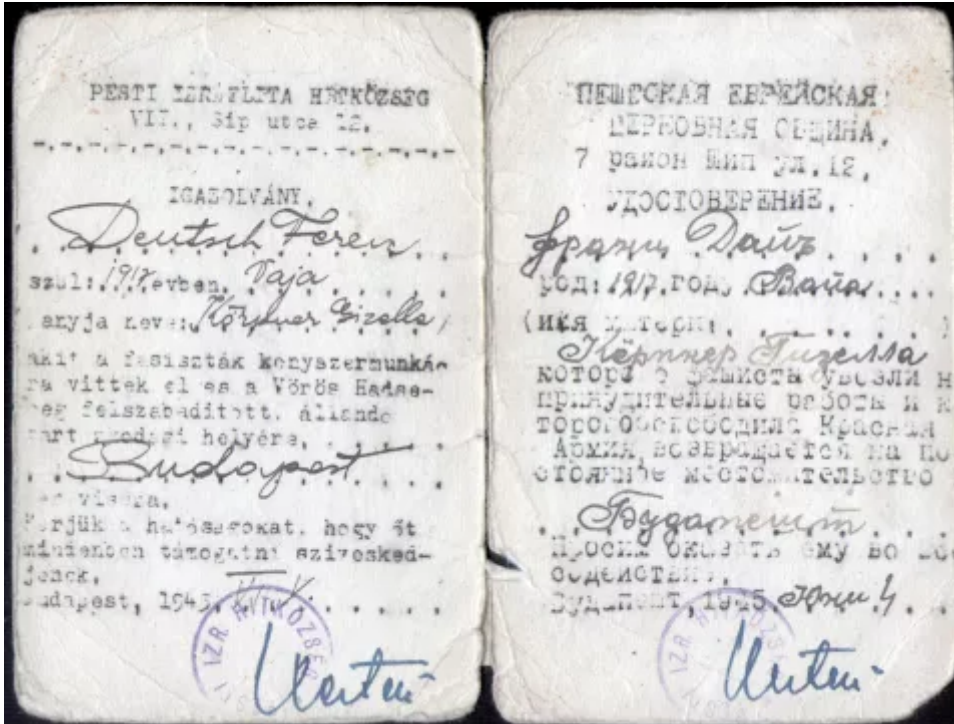 PESTI IZRAELITA HITKÖZSÉG
VII., Sip utca 12.
IGAZOLVÁNY.
Deutsch Ferenc
szül: 1917 évben. Vaja
anyja neve: Gizella
akit a fasiszták kenyszermunká-
ra vittek el es a Vörös Hadse-
reg felszabaditott, állando
tart helyére,
Budapest
vissza.
Kerjük a hatóságokat, hogy őt
mindenben támogatni sziveskedjenek.
Budapest, 1945.
PESTI IZR. HITKÖZSÉG
ПЕШТСКАЯ ЕВРЕЙСКАЯ
ВЕРНОВНАЯ ОБЩИНА,
7 район Шип ул.12.
УДОСТОВЕРЕНИЕ.
Франц Дайч
род: 1917 году Вайа
(имя матери: )
Кёрпнер Гизелла
которого фашисты увезли н
принудительные работы и к
торогоосвободила Красная
Армия, возвращается на по
стоянное местожительство
Будапешт
Просим оказать ему во все
содействия.
Будапешт, 1945. 4
PESTI IZR. HITKÖZSÉG